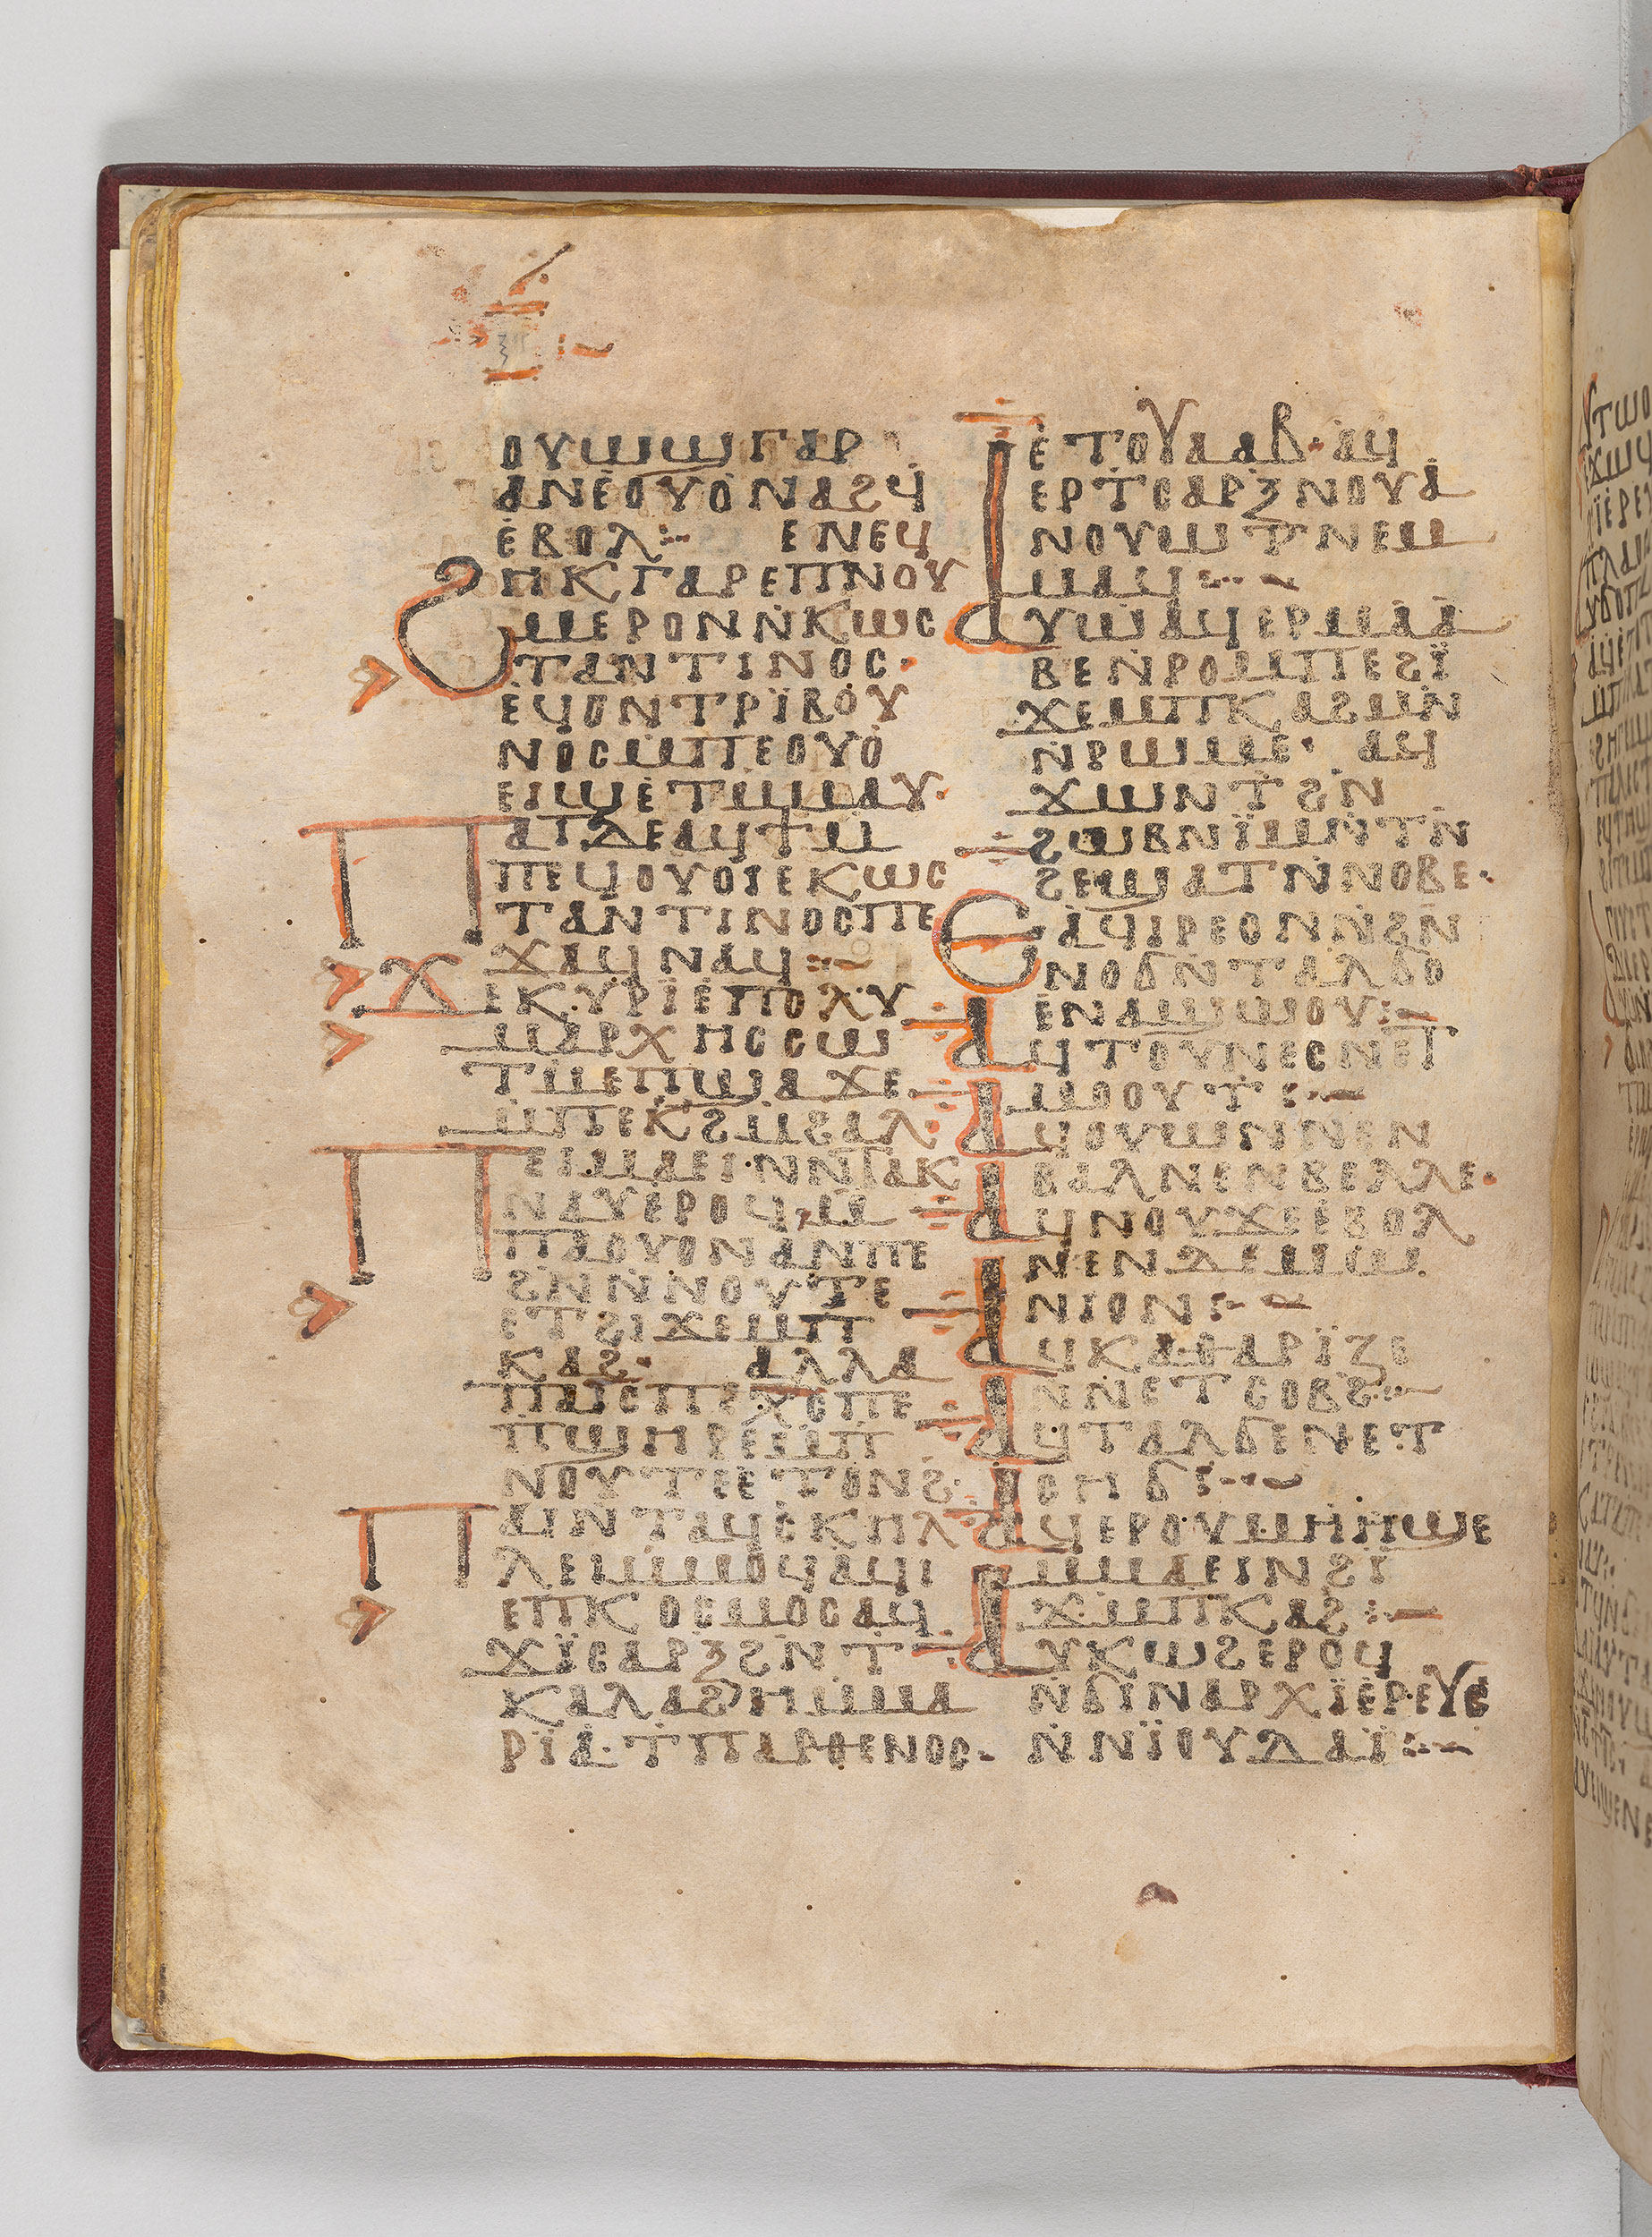 ⲟⲩⲱϣ ⲅⲁⲣ
ⲁⲛ ⲉⲟⲩⲟⲛⲁϩϥ
ⲉⲃⲟⲗ ⲉⲛⲉϥ
ϩⲏⲕ ⲅⲁⲣ ⲉⲡⲛⲟⲩ
ⲙⲉⲣⲟⲛ ⲛⲕⲱⲥ
ⲧⲁⲛⲧⲓⲛⲟⲥ·
ⲉϥⲟ ⲛⲧⲣⲓⲃⲟⲩ
ⲛⲟⲥ ⲙⲡⲉⲟⲩⲟ
ⲉⲓϣ ⲉⲧⲙⲙⲁⲩ·
ⲡⲁⲓ ⲇⲉ ⲁϥϯ ⲙ
ⲡⲉϥⲟⲩⲟⲓ ⲉⲕⲱⲥ
ⲧⲁⲛⲧⲓⲛⲟⲥ ⲡⲉ
ϫⲁϥ ⲛⲁϥ
ϫⲉ ⲕⲩⲣⲓⲉ ⲡⲟⲗⲩ
ⲙⲁⲣⲭⲏⲥ ⲥⲱ
ⲧⲙ ⲉⲡϣⲁϫⲉ
ⲙⲡⲉⲕϩⲙϩⲁⲗ·
ⲡⲉⲓⲙⲁⲉⲓⲛ ⲛⲧⲁⲕ
ⲛⲁⲩ ⲉⲣⲟϥ ⲙ
ⲡⲁ ⲟⲩⲟⲛ ⲁⲛ ⲡⲉ
ϩⲛ ⲛⲛⲟⲩⲧⲉ
ⲉⲧϩⲓϫⲉⲙ ⲡ
ⲕⲁϩ· ⲁⲗⲗⲁ
ⲡⲁ ⲓⲥ ⲡⲉⲭⲥ ⲡⲉ
ⲡϣⲏⲣⲉ ⲙⲡ
ⲛⲟⲩⲧⲉ ⲉⲧⲟⲛϩ·
ⲡⲁⲓ ⲛⲧⲁϥⲥⲕⲏⲗ
ⲗⲉⲓ ⲙⲙⲟϥ ⲁϥⲓ
ⲉⲡⲕⲟⲥⲙⲟⲥ ⲁϥ
ϫⲓⲥⲁⲣⲝ ϩⲛ ⲧ
ⲕⲁⲗⲁϩⲏ ⲙⲙⲁ
ⲣⲓⲁ ⲧⲡⲁⲣⲑⲉⲛⲟⲥ
ⲉⲧⲟⲩⲁⲁⲃ· ⲁϥ
ⲉⲣ ⲧⲥⲁⲣⲝ ⲛⲟⲩⲁ
ⲛⲟⲩⲱⲧ ⲛⲉⲙ
ⲙⲁϥ
ⲁⲩⲱ ⲁϥⲉⲣ ⲙⲁⲁ
ⲃⲉ ⲛⲣⲟⲙⲡⲉ ϩⲓ
ϫⲉⲙ ⲡⲕⲁϩ ⲙⲛ
ⲛⲣⲱⲙⲉ· ⲁϥ
ϫⲱⲛⲧ ϩⲛ
ϩⲱⲃ ⲛⲓⲙ ⲛⲧⲛ
ϩⲉ ϣⲁⲧⲛ ⲛⲟⲃⲉ·
ⲉⲁϥⲓⲣⲉ ⲟⲛ ⲛϩⲛ
ⲛⲟϭ ⲛⲧⲁⲗϭⲟ
ⲉⲛⲁϣⲱⲟⲩ
ⲁϥⲧⲟⲩⲛⲉⲥ ⲛⲉⲧ
ⲙⲟⲟⲩⲧ
ⲁϥⲟⲩⲱⲛ ⲛⲉⲛ
ⲃⲁⲗ ⲛⲉⲛⲃⲉⲗⲗⲉ·
ⲁϥⲛⲟⲩϫⲉ ⲉⲃⲟⲗ
ⲛⲉⲛⲇⲉⲙⲱ
ⲛⲓⲟⲛ
ⲁϥⲕⲁⲑⲁⲣⲓⲍⲉ
ⲛⲛⲉⲧⲥⲟⲃϩ
ⲁϥⲧⲁⲗϭⲉ ⲛⲉⲧ
ⲥⲏϭ
ⲁϥⲉⲣ ⲟⲩⲙⲏⲏϣⲉ
ⲙⲙⲁⲉⲓⲛ ϩⲓ
ϫⲙ ⲡⲕⲁϩ
ⲁⲩⲕⲱϩ ⲉⲣⲟϥ
ⲛϭⲓ ⲛⲁⲣⲭⲓⲉⲣⲉⲩⲥ
ⲛⲛⲓⲟⲩⲇⲁⲓ